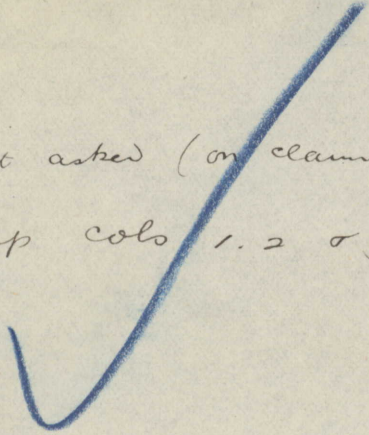 t asked (on claim
p cols 1.2 &